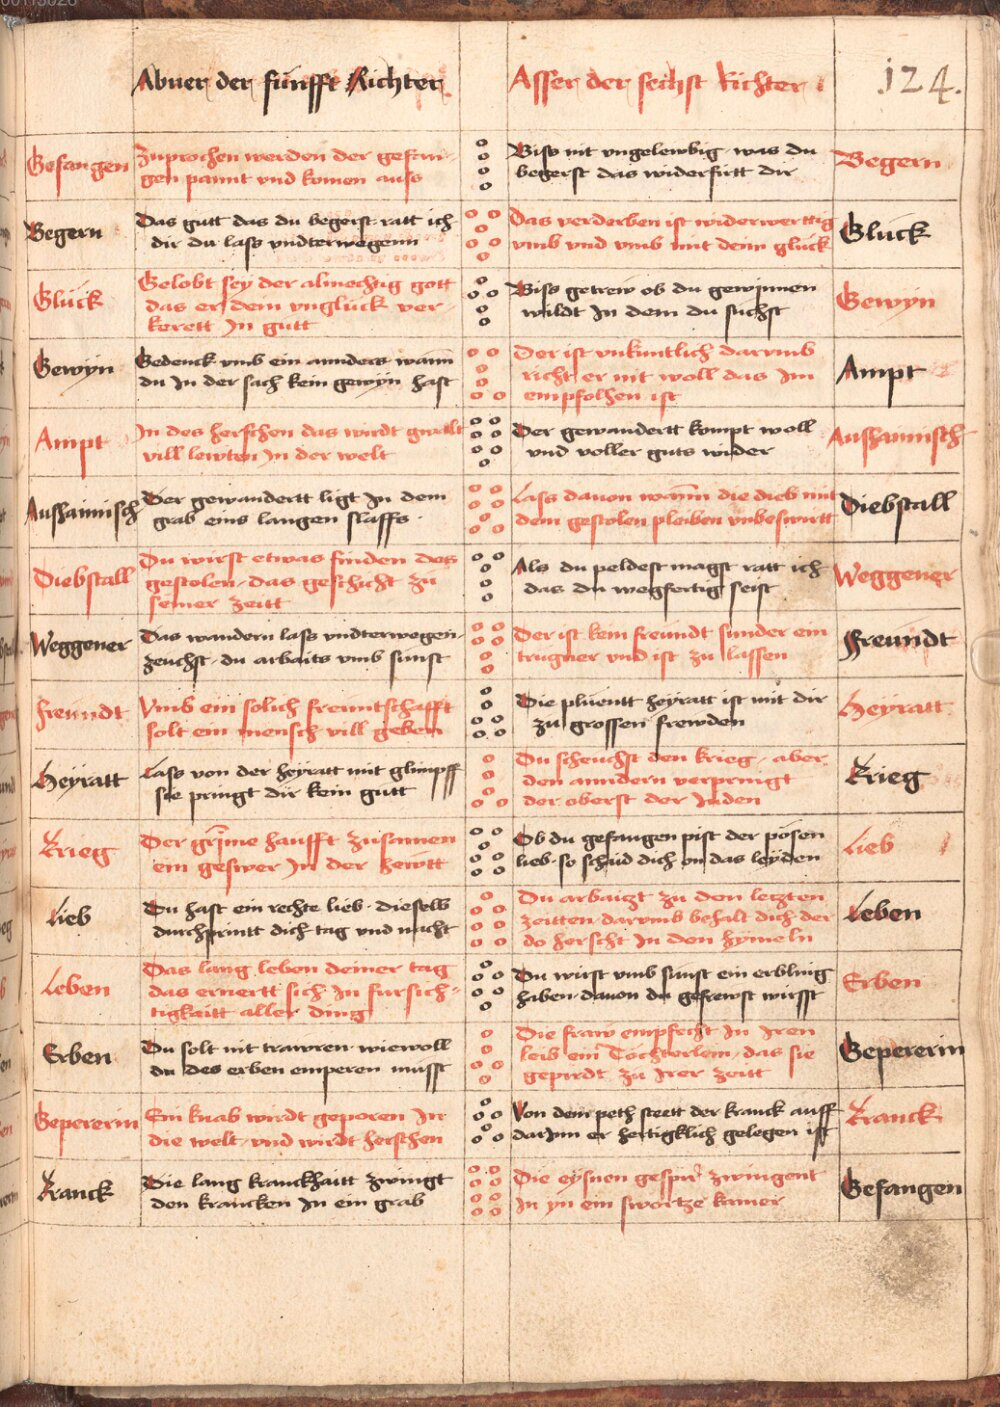 Abner der fünfft Richter
Asser der sechst Richter
124.
Gefangen
Zuprochen werden der gefan-
gen pannt vnd komen auss
Biss nit vngelewbig was du
begerst das widerfurt dir
Begern
Begern
Das gutt das du begerst ratt ich
dir du lass vndterwegenn
Das verderben ist widerwerttig
vmb vnd vmb mit deim gluck
Gluck
Glück
Gelobt sey der almechtig gott
das er dein vnglück ver-
kerett In gutt
Biss getrew ob du gewinnen
wildt In dem du suchst
Gewyn
Gewyn
Gedenck vmb ein annders wann
du In der sach kein gewyn hast
Der ist vnkuntlich darvmb
richt er nit woll das Im
empfolhen ist
Ampt
Ampt
In des herschen das wirdt gwalt
vill lewten In der welt
Der gewandertt kompt woll
vnd voller guts wider
Aushaimisch
Aushaimisch
Der gewandertt ligt In dem
grab eins langen slaffs
Lass dauon wann die dieb mit
dem gestolen pleiben
Diebstall
Diebstall
Du wirst etwas finden des
gestolen das geschicht zu
seiner zeitt
Als du peldest magst ratt ich
das du wegfertig seist
Weggener
Weggener
Das wandern lass vndterwegen
zeuchst du arbaits vmb sunst
Der ist kein freundt sunder ein
trugner vnd ist zu lassen
Freundt
Freundt
Vmb ein solich freuntschafft
solt ein mensch vill geben
Die pluentt heyratt ist mit dir
zu grossen frewden
Heyratt
Heyratt
Lass von der heyratt mit glimpff
sie pringt dir kein gutt
Du scheuchst den krieg aber
den anndern verpringt
der oberst der Juden
Krieg
Krieg
Der grime haufft zusamen
ein geswer In der hewtt
Ob du gefangen pist der pösen
lieb so schaid dich on das leyden
Lieb
Lieb
Du hast ein rechte lieb dieselb
durchprintt dich tag vnd nacht
Du arbaizt zu den letzten
zeitten darvmb behalt dich der
do herscht In den hymeln
Leben
Leben
Das lang leben deiner tag
das ernertt sich In fursich-
tigkaitt aller ding
Du wirst vmb sunst ein erbling
haben dauon du gefrewst wirsst
Erben
Erben
Du solt nit trawren wiewoll
du des erben emperen musst
Die fraw empfecht In Iren
leib ein Tochterlein das sie
gepirdt zu Irer zeitt
Gepererin
Gepererin
Ein knab wirdt geporen In
die welt vnd wirdt herschen
Von dem peth steett der kranck auff
darInn er hertigklich gelegen ist
Kranck
Kranck
Die lang kranckhaitt zwingt
den krancken In ein grab
Die eysnen zwingent
In yn ein swartze kamer
Gefangen